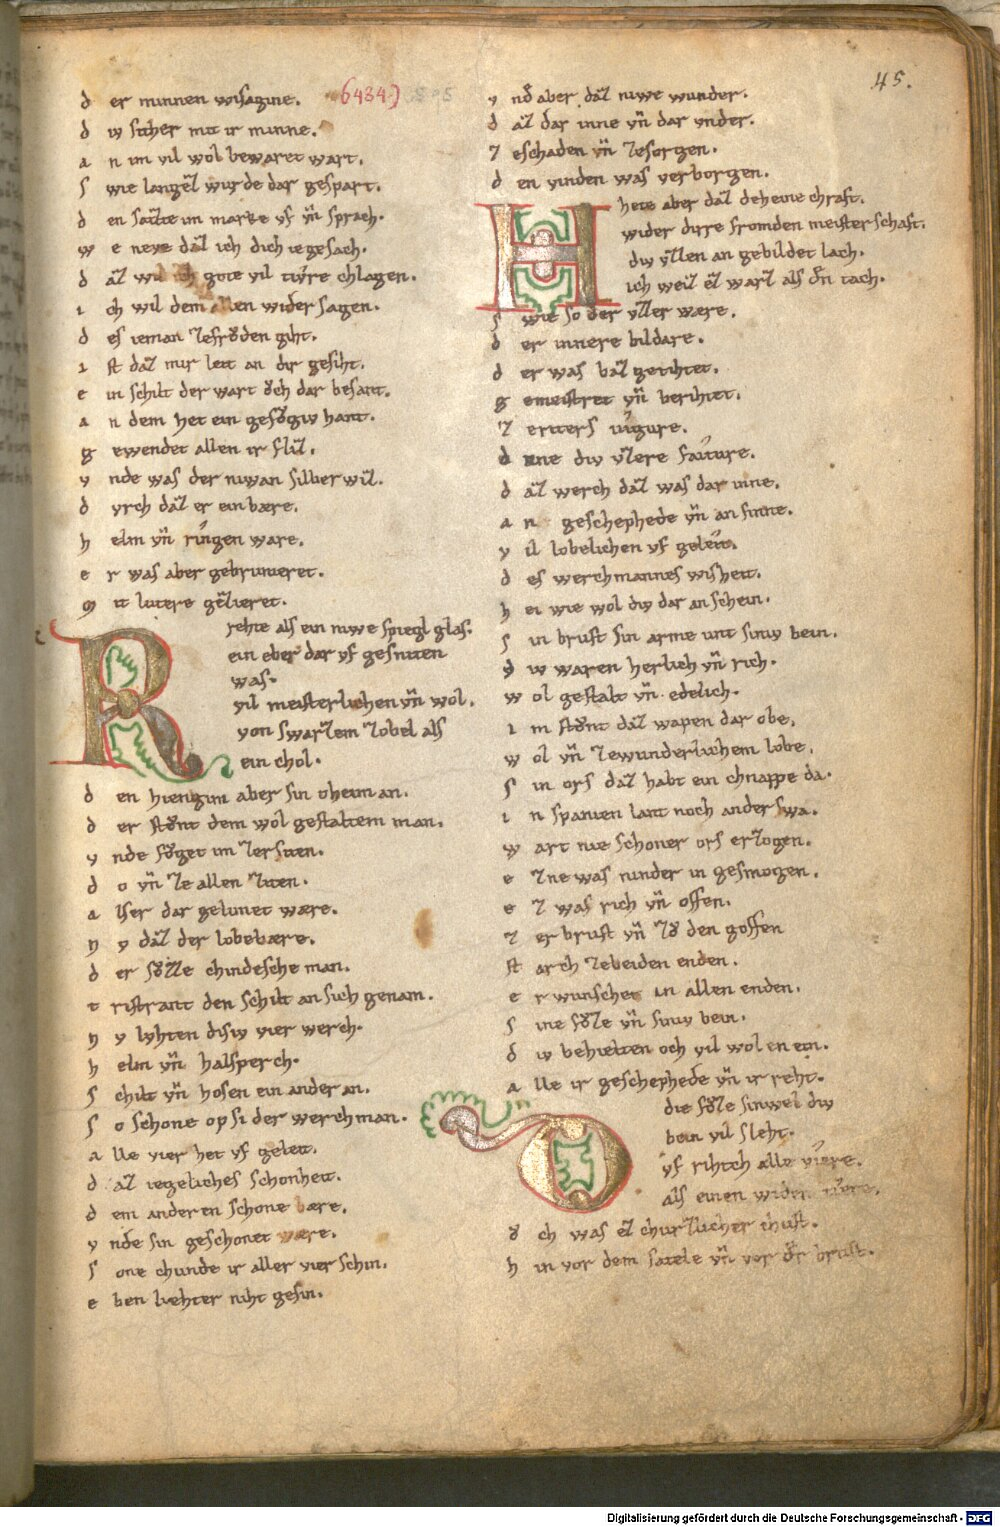 45.
d er minnen wisagine. 6484)
d iv sicher mit ir minne.
a n im vil wol bewaret wart.
s wie langez wurde dar gespart.
d en satzte im marke vf vn̄ sprach.
w e neve daz ich dich ie gesach.
d az wil ich gote vil tv́re chlagen.
i ch wil dem allen wider sagen.
d es ieman zefrǒden giht.
i st daz mir leit an dir gesiht.
e in schilt der wart ǒch dar besant.
a n dem het ein gefǒgiv hant.
g ewendet allen ir fliz.
v nde was der niwan silber wiz.
d vrch daz er ein bære.
h elm vn̄ ringen ware.
e r was aber gebrunieret.
m it lutere gezieret.
R rehte als ein niwe spiegl glas.
ein eber dar vf gesniten
was.
vil meisterlichen vn̄ wol.
von swarzem zobel als
ein chol.
d en hiengim aber sin oheim an.
d er stǒnt dem wol gestaltem man.
v nde fǒget im zersiten.
d o vn̄ ze allen ziten.
a lser dar gelimet wære.
n v daz der lobebære.
d er sǒzze chindesche man.
t ristrant den schilt an sich genam.
n v lvhten disiv vier werch.
h elm vn̄ halsperch.
s chilt vn̄ hosen ein ander an.
s o schone op si der werchman.
a lle vier het vf geleit.
d az iegeliches schonheit.
d em anderen schone bære.
v nde sin geschonet wære.
s one chunde ir aller vier schin.
e ben liehter niht gesin.
v nd̄ aber daz niwe wunder.
d az dar inne vn̄ dar vnder.
z eschaden vn̄ zesorgen.
d en vinden was verborgen.
H hete aber daz deheine chraft.
wider dirre fromden meisterschaft.
div vzzen an gebildet lach.
ich weiz ez warz als d̄n tach.
s wie so der vzzer wære.
d er innere bildare.
d er was baz getihtet.
g emeistret vn̄ berihtet.
z eriters vigure.
d nne div vzere faiture.
d az werch daz was dar inne.
a n geschephede vn̄ an sinne.
v il lobelichen vf geleit.
d es werchmannes wisheit.
h ei wie wol div dar an schein.
s in brust sin arme unt siniv bein.
d iv waren herlich vn̄ rich.
w ol gestalt vn̄ edelich.
i m stǒnt daz wapen dar obe.
w ol vn̄ zewunderlichem lobe.
s in ors daz habt ein chnappe da.
i n spanien lant noch ander swa.
w art nie schoner ors erzogen.
e zne was ninder in gesmogen.
e z was rich vn̄ offen.
z er brust vn̄ zǒ den goffen
st arch zebeiden enden.
e r wunschet in allen enden.
s ine fǒze vn̄ siniv bein.
d iv behielten och vil wol en ein.
a lle ir geschephede vn̄ ir reht.
D die fǒze sinwel div
bein vil sleht.
vf rihtch alle viere.
als einen wilden tiere.
ǒ ch was ez churzlicher chust.
h in vor dem satele vn̄ vor d̄r brust.
Digitalisierung gefördert durch die Deutsche Forschungsgemeinschaft - DFG